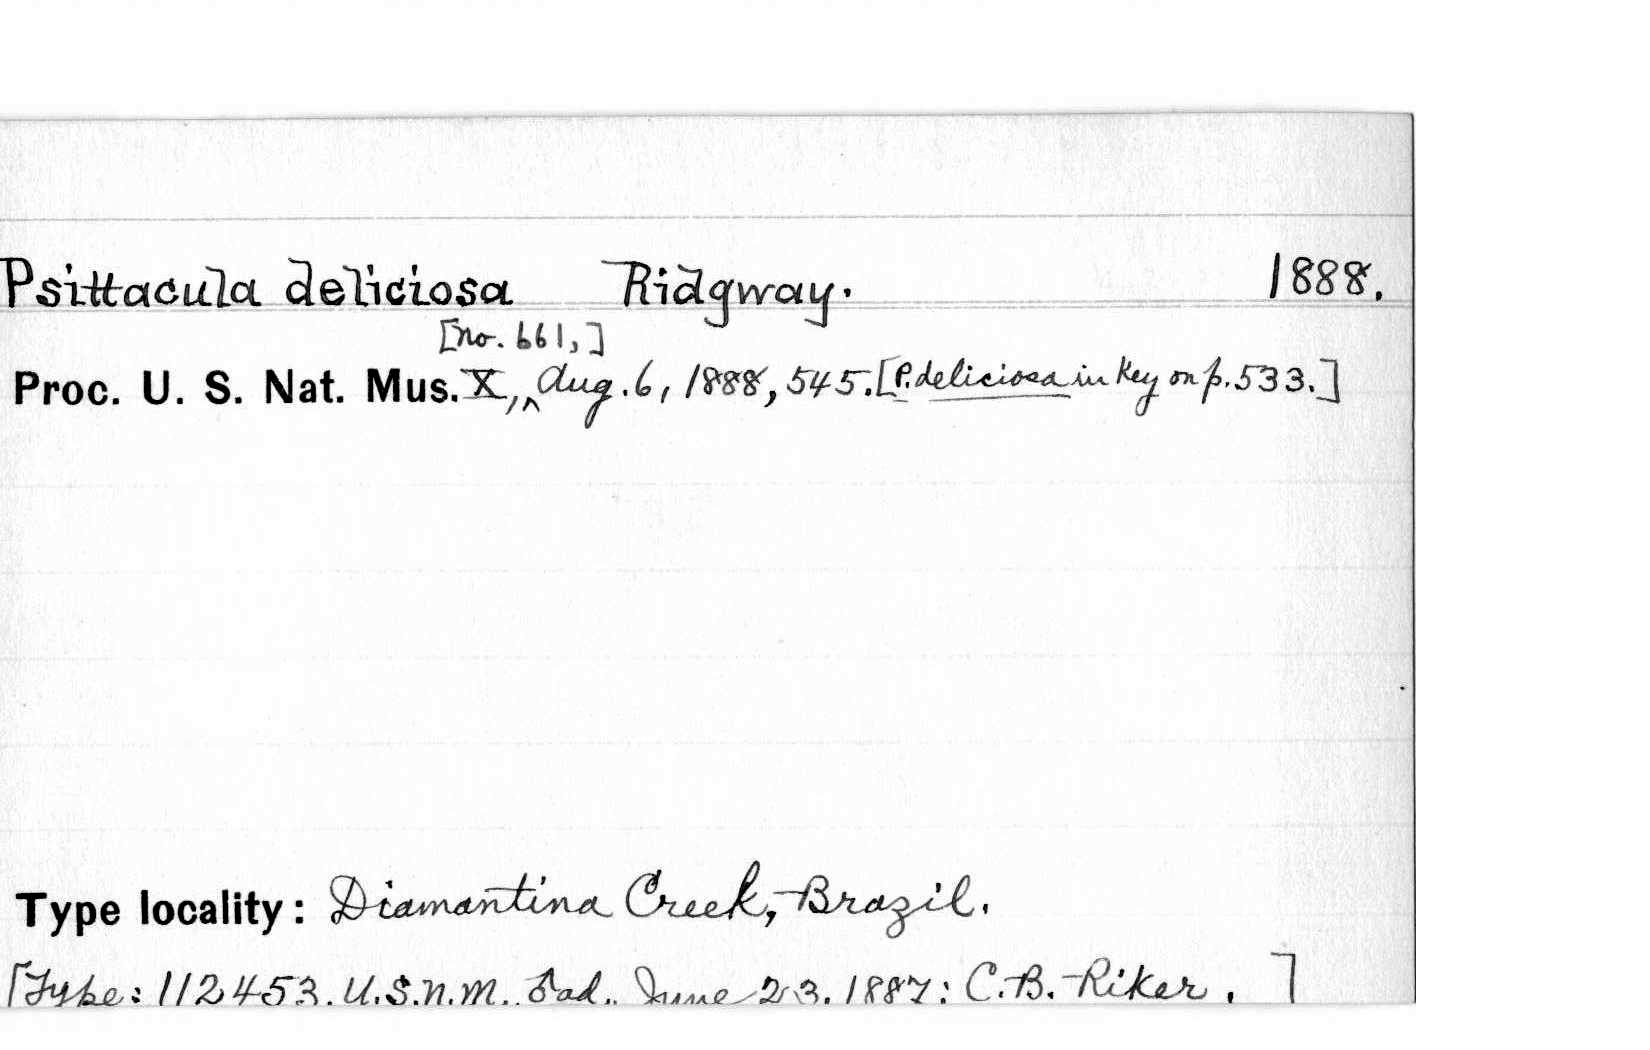 Psittacula deliciosa Ridgway. 1888.
[no. 661,]
Proc. U. S. Nat. Mus. X,, ^ Aug. 6, 1888, 545. [P. deliciosa in key on p. 533.]
Type locality: Diamantina Creek, Brazil.
[Type: 112453. U.S.N.M. ad. June 23. 1887: C.B. Riker. ]